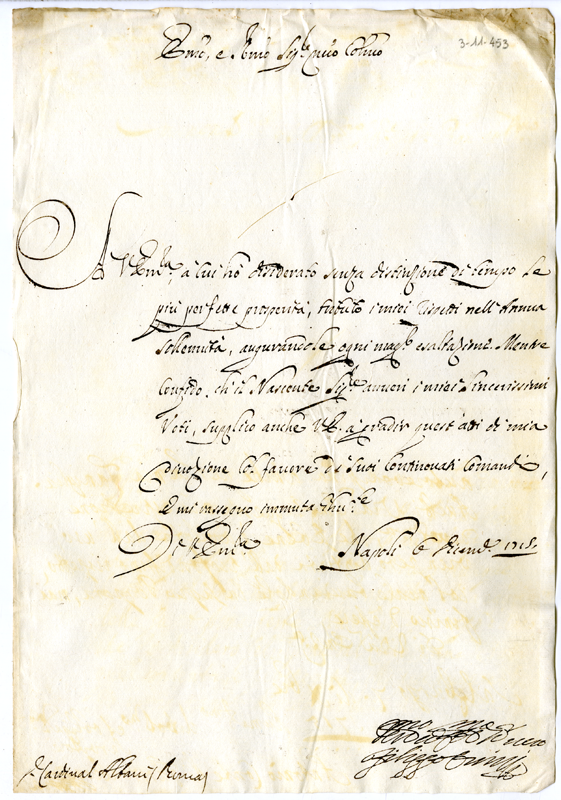 3-11-453
Emo, e Rmo Sigre mio Colmo
A V. Emza, a cui hò desiderato senza distinzione di tempo le
più perfette prosperità, tributo i miei rispetti nell'Annua
Sollennità, augurandole ogni maggre esaltazione. Mentre
Confido, ch'il Nascente Sigre avveri i miei sincerissimi
Voti, supplico anche V.E. à gradir quest'atti di mia
Devozione col favore di suoi Continovati Comandi,
E mi rassegno immutabilmte
Di V. Emza
Napoli 6 Dicembre 1715.
Filippo
Sr Cardinal Albani (Roma)